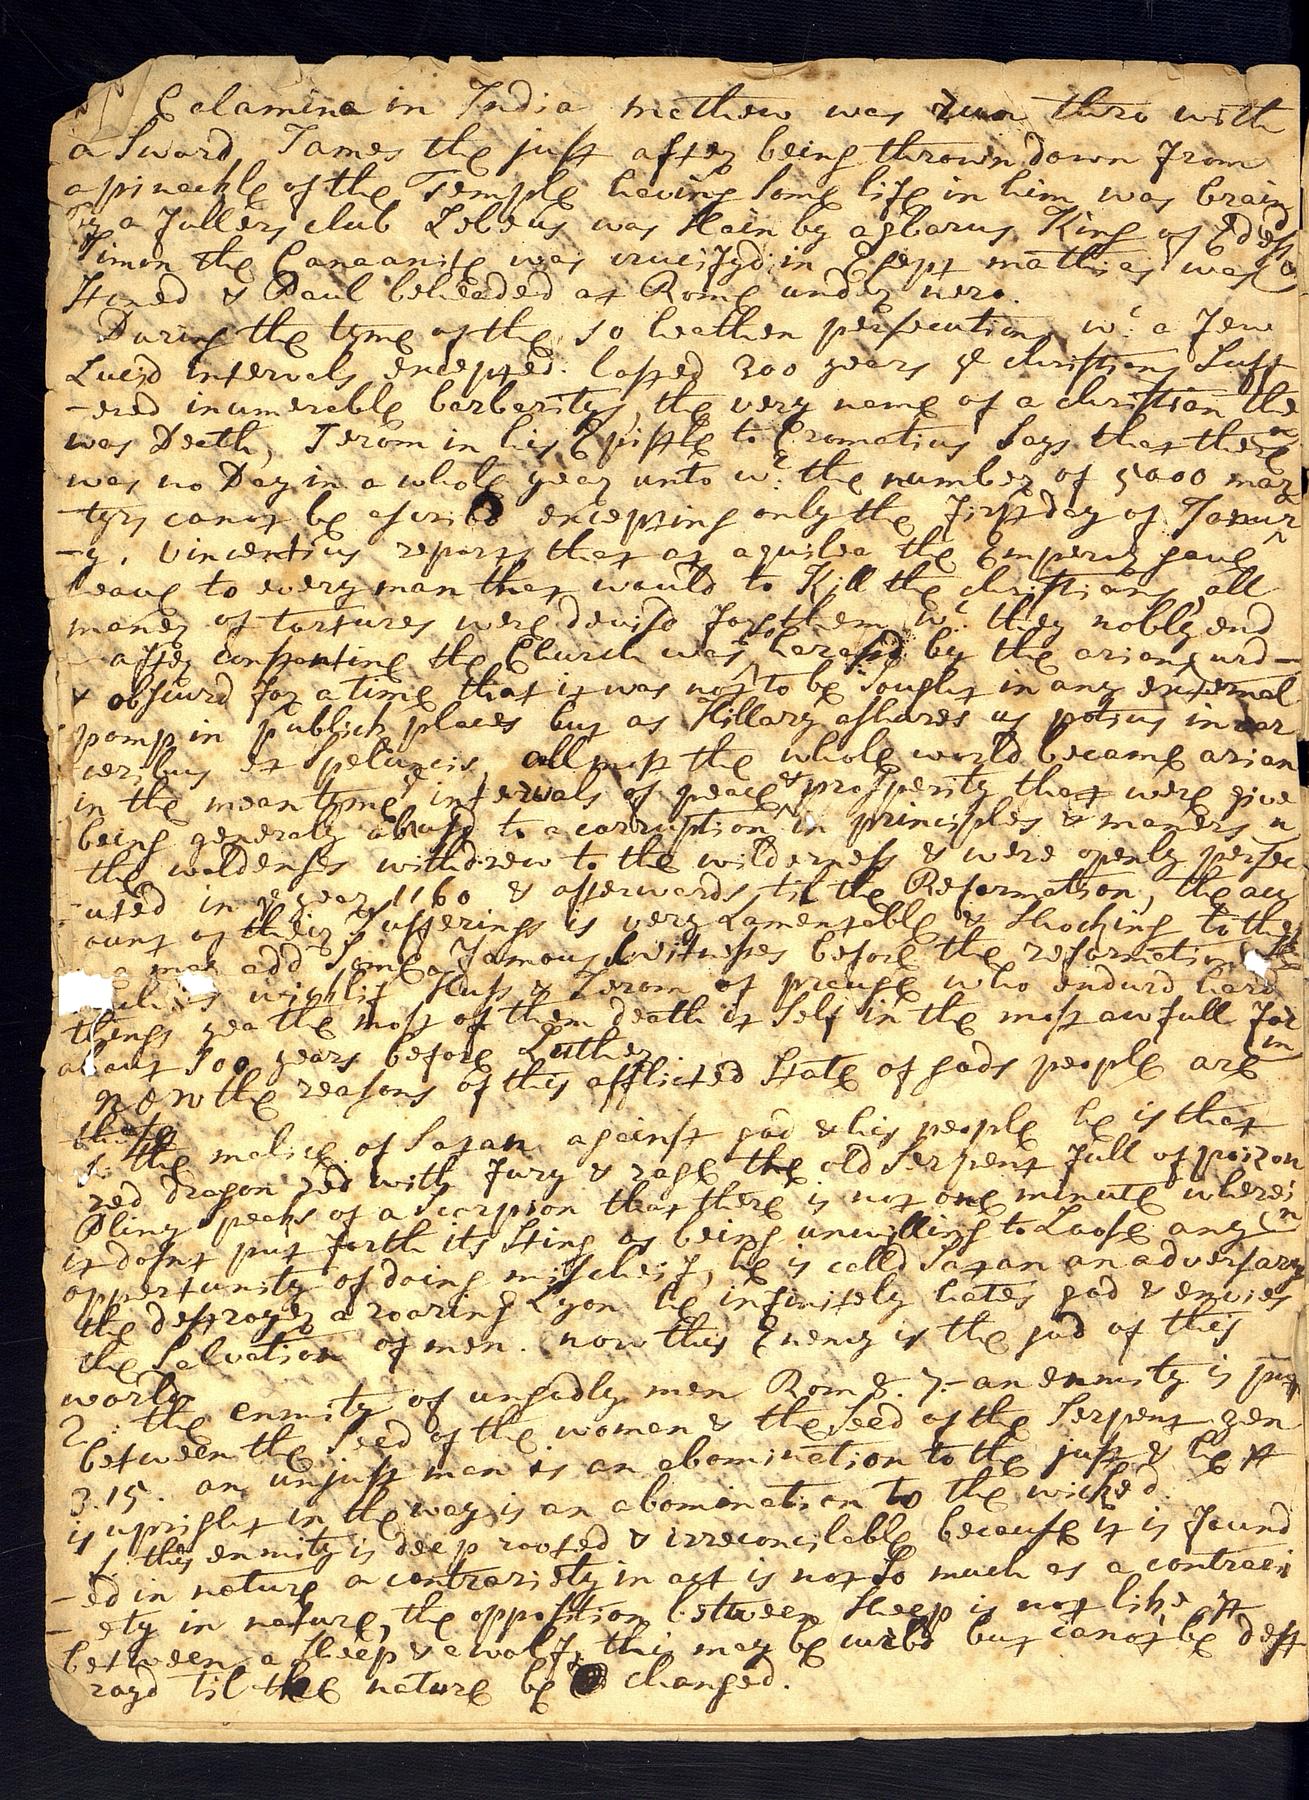 Calamina in India mathew was run thro with
a Sword, James the just after being thrown down from
a pineckle of the Temple having some life in him was brain
by a fullers club Lebeus was slain by agbarus King of Edessa
Simon the Canaanite was crucifyd in Egept mathias was
stoned & Paul beheaded at Rome under nero.
During the tyme of the 10 heathen persecutions wc a few
Lucid intervals excepted. lasted 300 years ye christians Suff
-ered inumerable barberitys, the very name of a christian then
was Death, Jerom in his Epistle to Cromatius says that there
was no Day in a whole year unto wc the number of 5000 mar
tyrs canot be ascribd excepting only the first day of Janur
-y, Vincentius reports that at aquilea the Emperor gave
leave to every man that would to Kill the christians, all
maner of tortures were devisd for them wc they nobly end
after constantine the Church was so harasd by the arians urd-
& obscurd for a time that it was not to be sought in any external
pomp in publick places but as Hillary ashures us potius in car
ceribus et speluncis, allmost the whole world became arian
in the mean tyme ye intervals of peace & prosperity that were give
being generaly abusd to a corruption in principles & maners n
the waldenses withdrew to the wilderness & were openly persec
-uted in ye year 1160 & afterwards til the Reformation, the acc
ount of their sufferings is very Lamentable & shocking to thes
may add some famous witneses before the reformation
wicklif Huss & Jerom of prauge who endurd hard
things yea the most of them death it self in the most awfull for
about 100 years before Luther
now the reasons of this afflicted state of gods people are in
these
1. the malice of Satan against god & his people he is that
red dragon red with fury & rage the old serpent full of poizon
Pliny speaks of a scorpion that there is not one minute wherei
it dosnt put forth its sting as being unwilling to Loose any n
oppertunity of doing mischeif, he is calld Satan an adversary
the destroyer a roaring Lyon he infinitely hates god & envies
the salvation of men. now this Enemy is the god of this
world
2. the enmity of ungodly men Rom 8. 7.- an enmity is put
between the seed of the women & the seed of the serpent gen
3.15. an unjust man is an abomination to the just & he yt
is upright in the way is an abomination to the wicked
1. this enmity is deep rooted & irreconcilable because it is found
-ed in nature a contrariety in act is not so much as a contrari
-ety in nature, the opposition between sheep is not like yt
between a sheep & a wolf, this may be curbd but canot be dest
royd til the nature be changed.